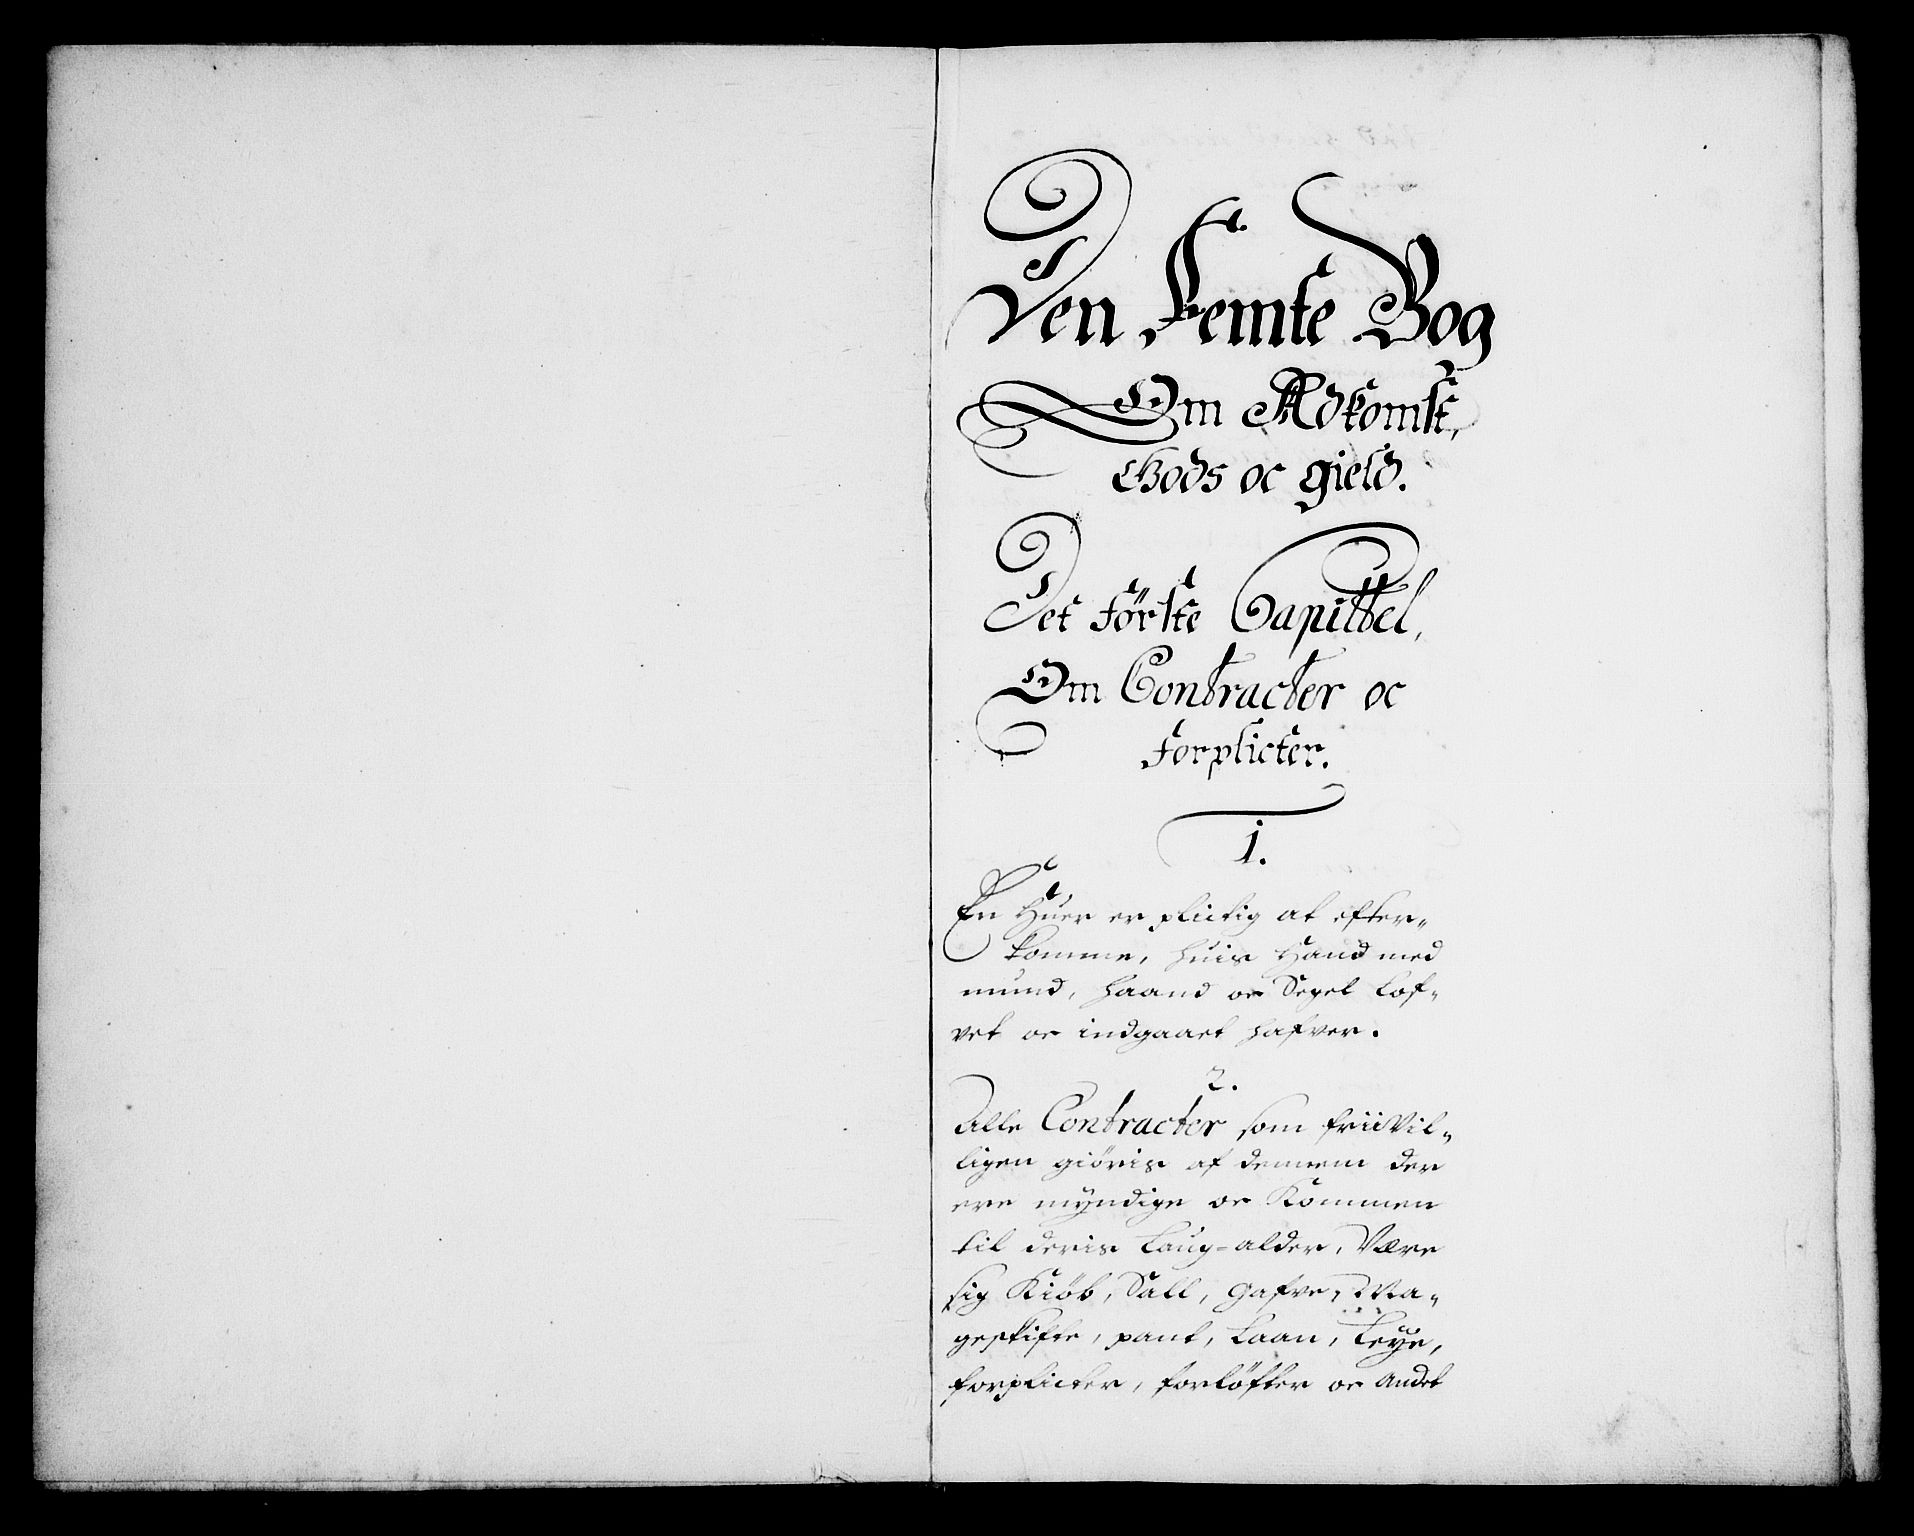 Den Femte Bog
Om Adkomst,
Gods oc gield.
Det Förste Capittel,
Om Contracter oc
Forplicter.
1.
En Huer er plictig at efter„
komme, huis Hand med
mund, haand oc Segel Lof„
vet oc indgaaet hafver.
2.
Alle Contracter som friivil„
ligen giöris af dennem der
ere myndige oc Kommen
til deris Laug-alder, Være
sig Kiöb, Sall, Gafve, Ma„
geskifte, pant, Laan, Leye,
forplicter, forløfter oc andet